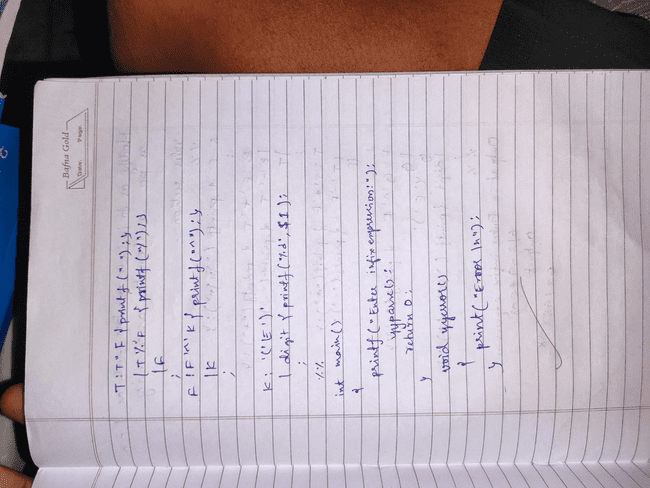 Bafna Gold
Date: Page:
T : T * F { printf ("*"); }
| T '/' F { printf ("/"); }
| F
;
F : F '^' K { printf ("^"); }
| K
;
K : '(' E ')'
| digit { printf ("%d", $1);
;
%%
int main()
{
printf ("Enter infix expression: ");
yyparse();
return 0;
}
void yyerror()
{
print ("Error \n");
}